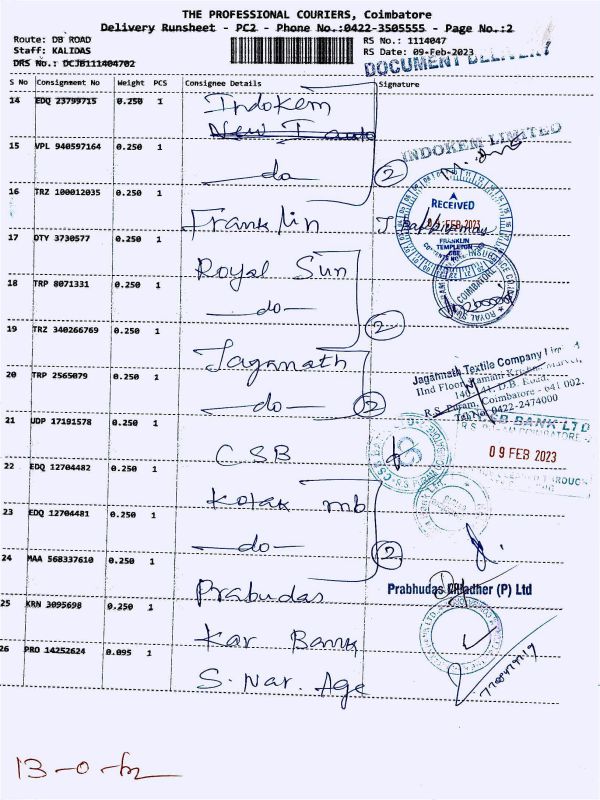 THE PROFESSIONAL COURIERS, Coimbatore
Delivery Runsheet - PC2 - Phone No.:0422-3505555 - Page No.:2
Route: DB ROAD
RS No.: 1114047
Staff: KALIDAS
RS Date: 09-Feb-2023
DRS No.: DCJB111404702
DOCUMENT DELIVERY
S No Consignment No Weight PCS Consignee Details Signature
14 EDQ 23799715 0.250 1 Indokem
New
INDOKEM LIMITED
15 VPL 940597164 0.250 1 do 2
16 TRZ 100012035 0.250 1 Franklin
RECEIVED
FEB 2023
FRANKLIN
TEMPLETON
17 DTY 3730577 0.250 1 Royal Sun
INSURANCE CO.
COIMBATORE
ROYAL SUN
18 TRP 8071331 0.250 1 do 2
19 TRZ 340266769 0.250 1 Jaganath
Jagannath Textile Company Limited
IInd Floor,
D.B. Road,
R.S. Puram, Coimbatore - 641 002.
0422-2474000
20 TRP 2565079 0.250 1 do 2
21 UDP 17191578 0.250 1 CSB
CSB BANK LTD
09 FEB 2023
22 EDQ 12704482 0.250 1 Kotak mb
23 EDQ 12704481 0.250 1 do 2
24 MAA 568337610 0.250 1 Prabudas
Prabhudas (P) Ltd
25 KRN 3095698 0.250 1 Kar Bank
26 PRO 14252624 0.095 1 S. Nar. Age
13-0-